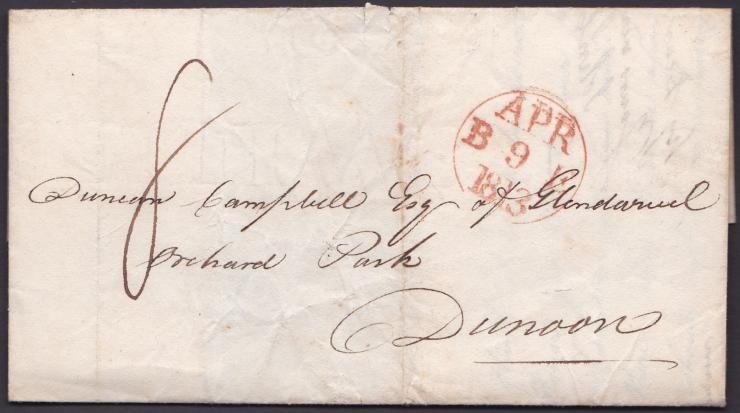 8
APR
B 9
183
Duncan Campbell Esq of Glendaruel
Orchard Park
Dunoon